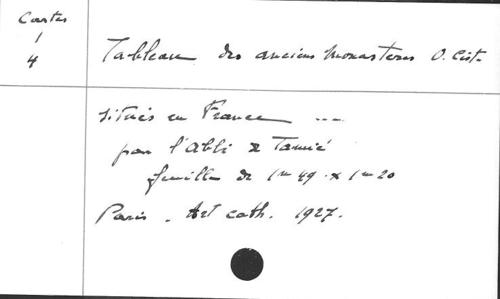 Cartes
1
4
Tableau des anciens monasteres O. Cist.
situés en France ---
par l'Abbé de Tamié
feuille de 1m 49 × 1m 20
Paris. Art cath. 1927.